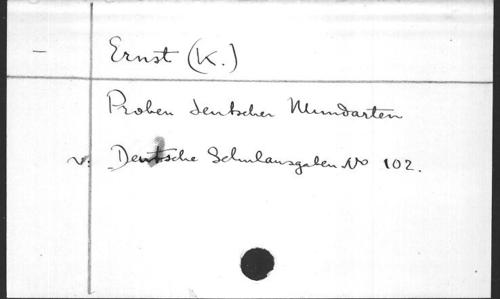 — Ernst (K.)
Proben deutscher Mundarten
v: Deutsche Schulausgaben No 102.